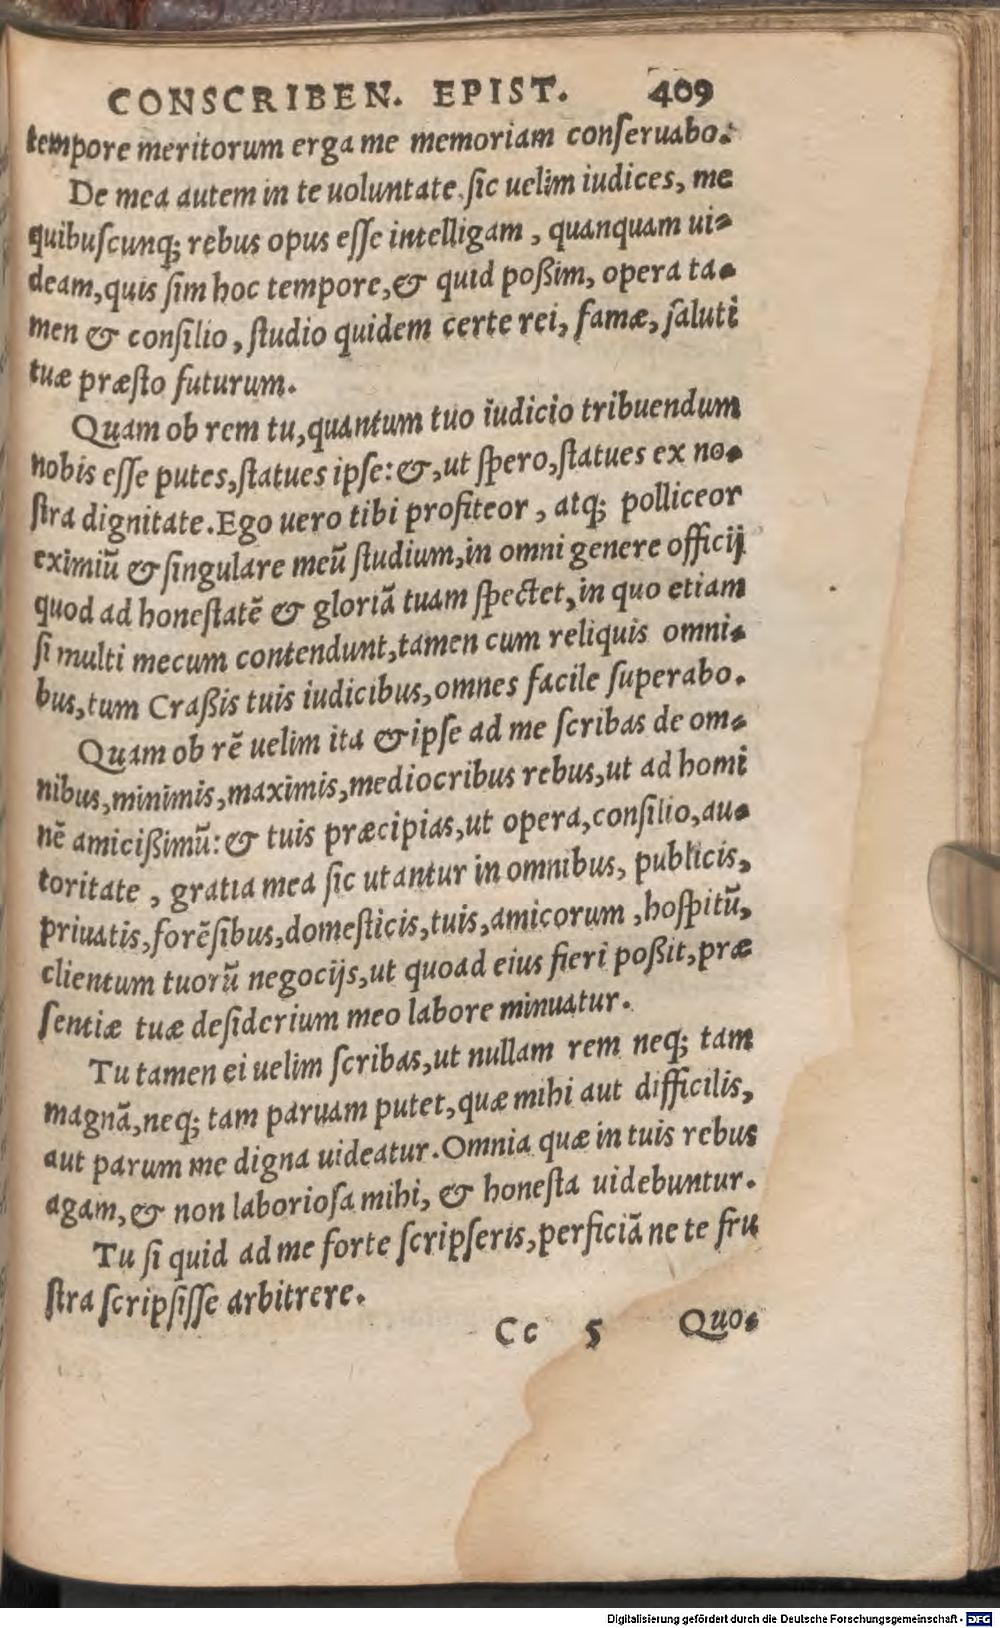 CONSCRIBEN. EPIST. 409
tempore meritorum erga me memoriam conſeruabo.
De mea autem in te uoluntate ſic uelim iudices, me
quibuſcunq; rebus opus eſſe intelligam, quanquam ui-
deam, quis ſim hoc tempore, & quid poßim, opera ta-
men & conſilio, ſtudio quidem certe rei, famæ, ſaluti
tuæ præſto futurum.
Quam ob rem tu, quantum tuo iudicio tribuendum
nobis eſſe putes, ſtatues ipſe: &, ut ſpero, ſtatues ex no-
ſtra dignitate. Ego uero tibi profiteor, atq; polliceor
eximiũ & ſingulare meũ ſtudium, in omni genere officij
quod ad honeſtatẽ & gloriã tuam ſpectet, in quo etiam
ſi multi mecum contendunt, tamen cum reliquis omni-
bus, tum Craßis tuis iudicibus, omnes facile ſuperabo.
Quam ob rẽ uelim ita & ipſe ad me ſcribas de om-
nibus, minimis, maximis, mediocribus rebus, ut ad homi
nẽ amicißimũ: & tuis præcipias, ut opera, conſilio, au-
toritate, gratia mea ſic utantur in omnibus, publicis,
priuatis, forẽſibus, domeſticis, tuis, amicorum, hoſpitũ,
clientum tuorũ negocijs, ut quoad eius fieri poßit, præ
ſentiæ tuæ deſiderium meo labore minuatur.
Tu tamen ei uelim ſcribas, ut nullam rem neq; tam
magnã, neq; tam paruam putet, quæ mihi aut difficilis,
aut parum me digna uideatur. Omnia quæ in tuis rebus
agam, & non laborioſa mihi, & honeſta uidebuntur.
Tu ſi quid ad me forte ſcripſeris, perficiã ne te fru
ſtra ſcripſiſſe arbitrere.
Cc 5 Quo-
Digitalisierung gefördert durch die Deutsche Forschungsgemeinschaft - DFG